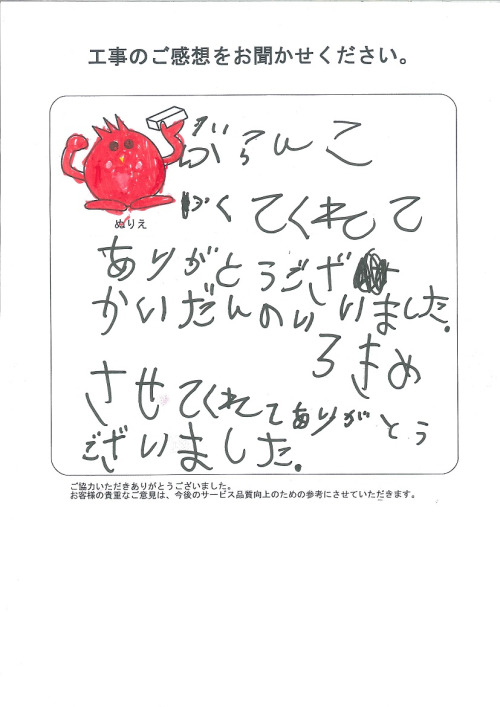 工事のご感想をお聞かせください。
ぶらんこ
ぬりえ
つくてくれてて
ありがとうござ
かいだんのいいました。
ろきめ
させてくれててありがとう
ございました。
ご協力いただきありがとうございました。
お客様の貴重なご意見は、今後のサービス品質向上のための参考にさせていただきます。